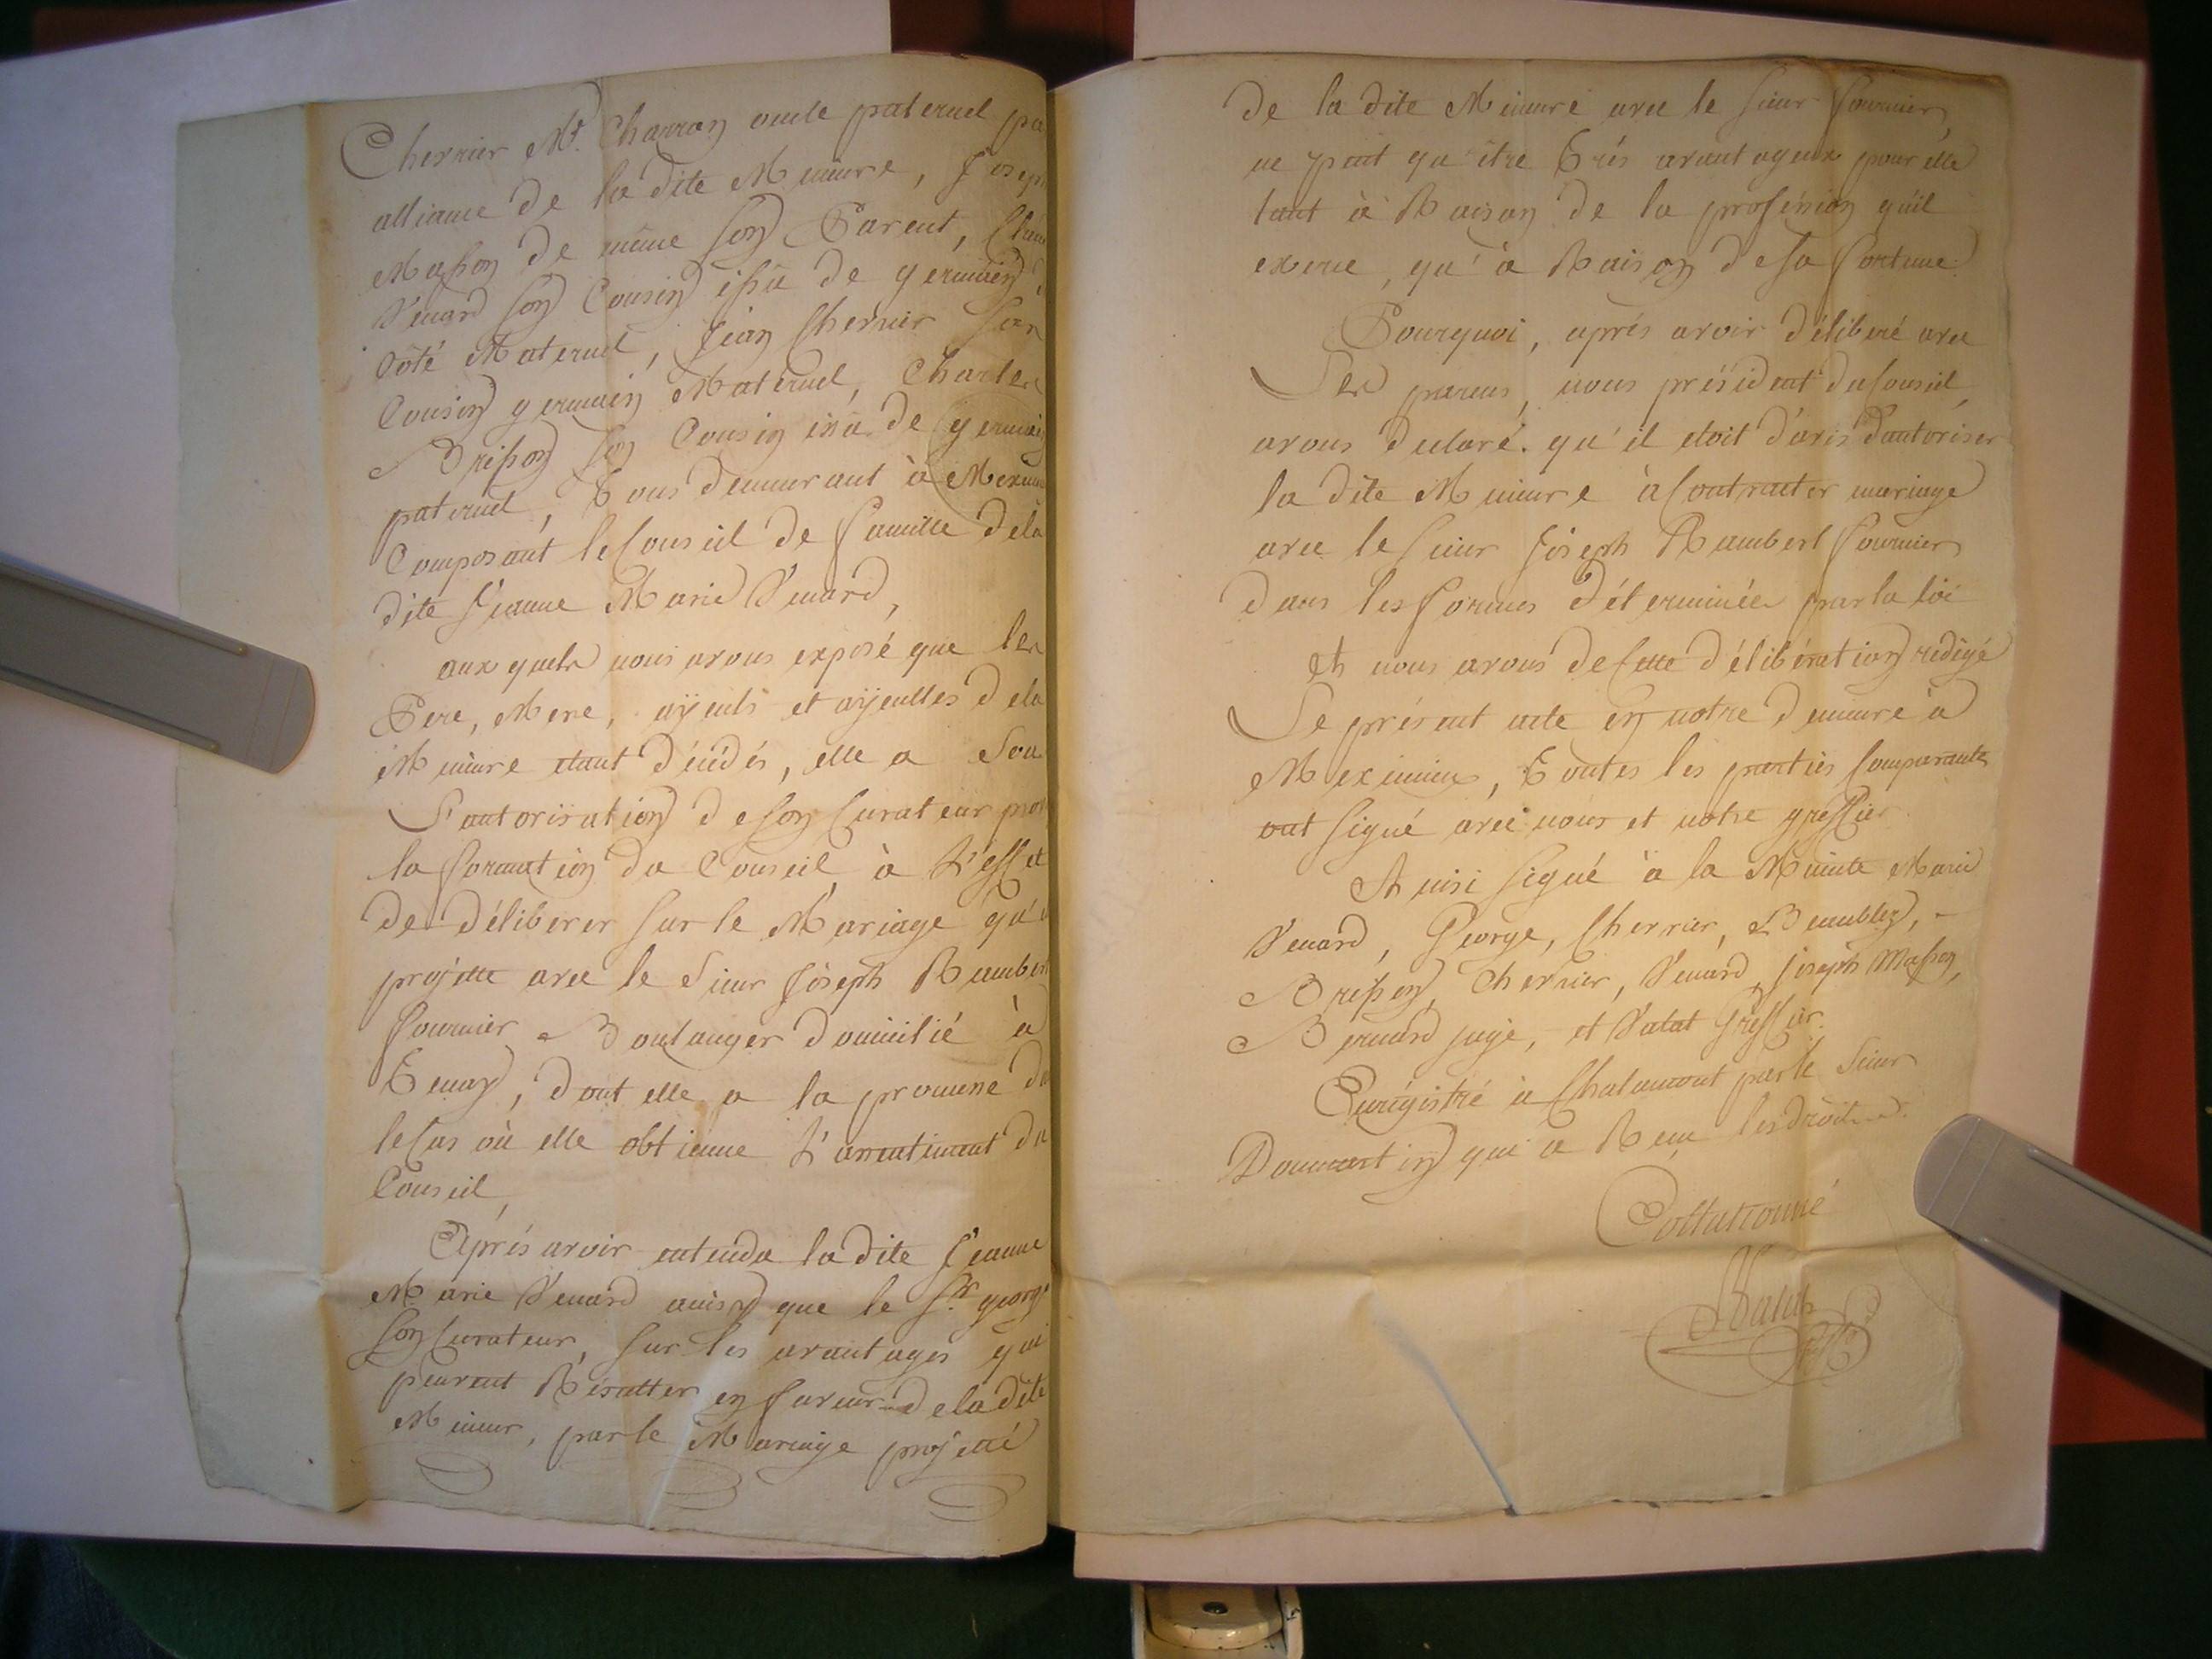 Cherrier Md. Charron oncle paternel pa
alliance de la dite Mineure, Josep
Masson de même son Parent, Claud
Venard son Cousin issu de germain d
Côté Maternel, Jean Cherrier son
Cousin germain Maternel, Charles
Brisson son Cousin issu de germain
paternel, Tous demeurant à Meximi
Composant le Conseil de famille dela
dite Jeanne Marie Venard,
aux quels nous avons exposé que les
Pere, Mere, ayeuls et ayeulles dela
Mineure etant décédés, elle a sou
L'autorisation de son Curateur pro
la formation du Conseil à L'effet
de déliberer sur le Mariage qu'e
projette avec le Sieur Joseph Rambert
fournier Boulanger domicilié à
Tenay, dont elle a la promesse da
le Cas où elle obtienne L'assentiment du
Conseil,
Après avoir entendu la dite Jeanne
Marie Venard ainsy que le Sr. george
son Curateur, sur les avantages qui
peuvent Résulter en faveur dela dite
Mineur, par le Mariage projetté
de la dite Mineure avec le sieur fournier,
ne peut qu'être Très avantageux pour elle
tant à Raison de la profession qu'il
exerce, qu'à Raison de sa fortune.
Pourquoi, après avoir délibéré avec
Les parens, nous président du Conseil,
avons declaré qu'il etoit d'avis d'autoriser
la dite Mineure à Contracter mariage
avec le sieur Joseph Rambert fournier
dans les formes déterminées par la loi
Et nous avons de Cette délibération rédigé
Le présent acte en notre demeure à
Meximieux, Toutes les parties Comparantes
ont signé avec nous et notre greffier
Ainsi signé à la Minute Marie
Venard, George, Cherrier, Bemblez,
Brisson, Cherrier, Venard, joseph Masson,
Bernard juge, et Valat Greffier.
Enrégistré à Chalamont par le Sieur
Dommartin qui a Reçu les droits.
Collationné